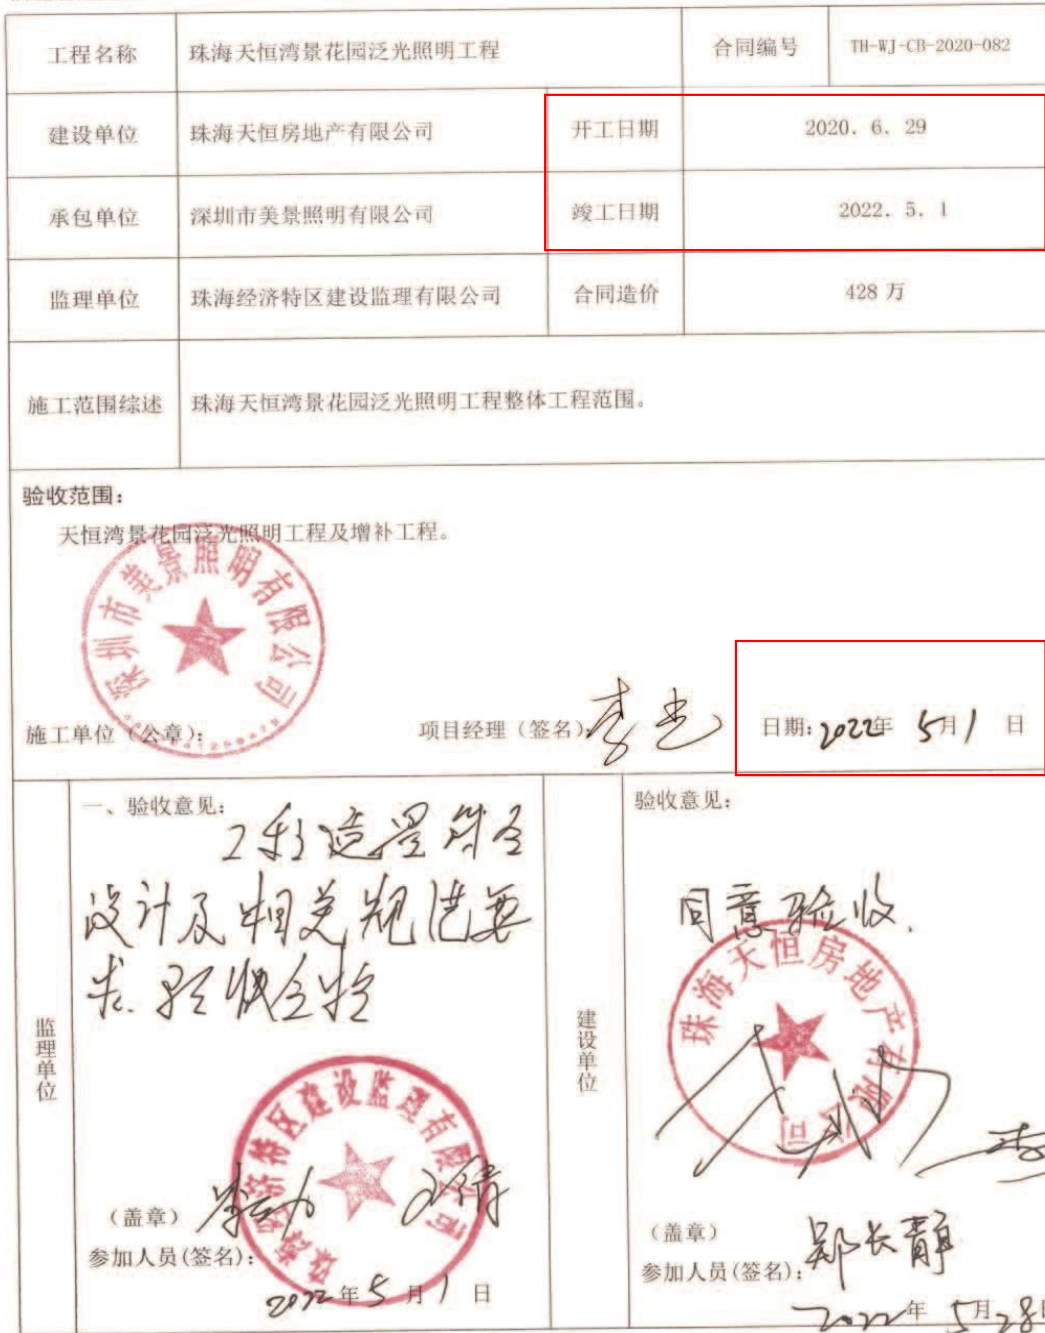 工程名称 珠海天恒湾景花园泛光照明工程 合同编号 TH-WJ-CB-2020-082
建设单位 珠海天恒房地产有限公司 开工日期 2020. 6. 29
承包单位 深圳市美景照明有限公司 竣工日期 2022. 5. 1
监理单位 珠海经济特区建设监理有限公司 合同造价 428 万
施工范围综述 珠海天恒湾景花园泛光照明工程整体工程范围。
验收范围：
天恒湾景花园泛光照明工程及增补工程。
深圳市美景照明有限公司
施工单位（公章）： 项目经理（签名）： 日期: 2022年 5月1 日
监理单位
一、验收意见：
设计及相关规范要
求.
济特区建设监理有限公司
（盖章）
参加人员(签名)：
2022年 5 月 1 日
建设单位
验收意见：
同意验收.
珠海天恒房地产有限公司
（盖章）
参加人员(签名)： 郑长静
2022年 5月28日